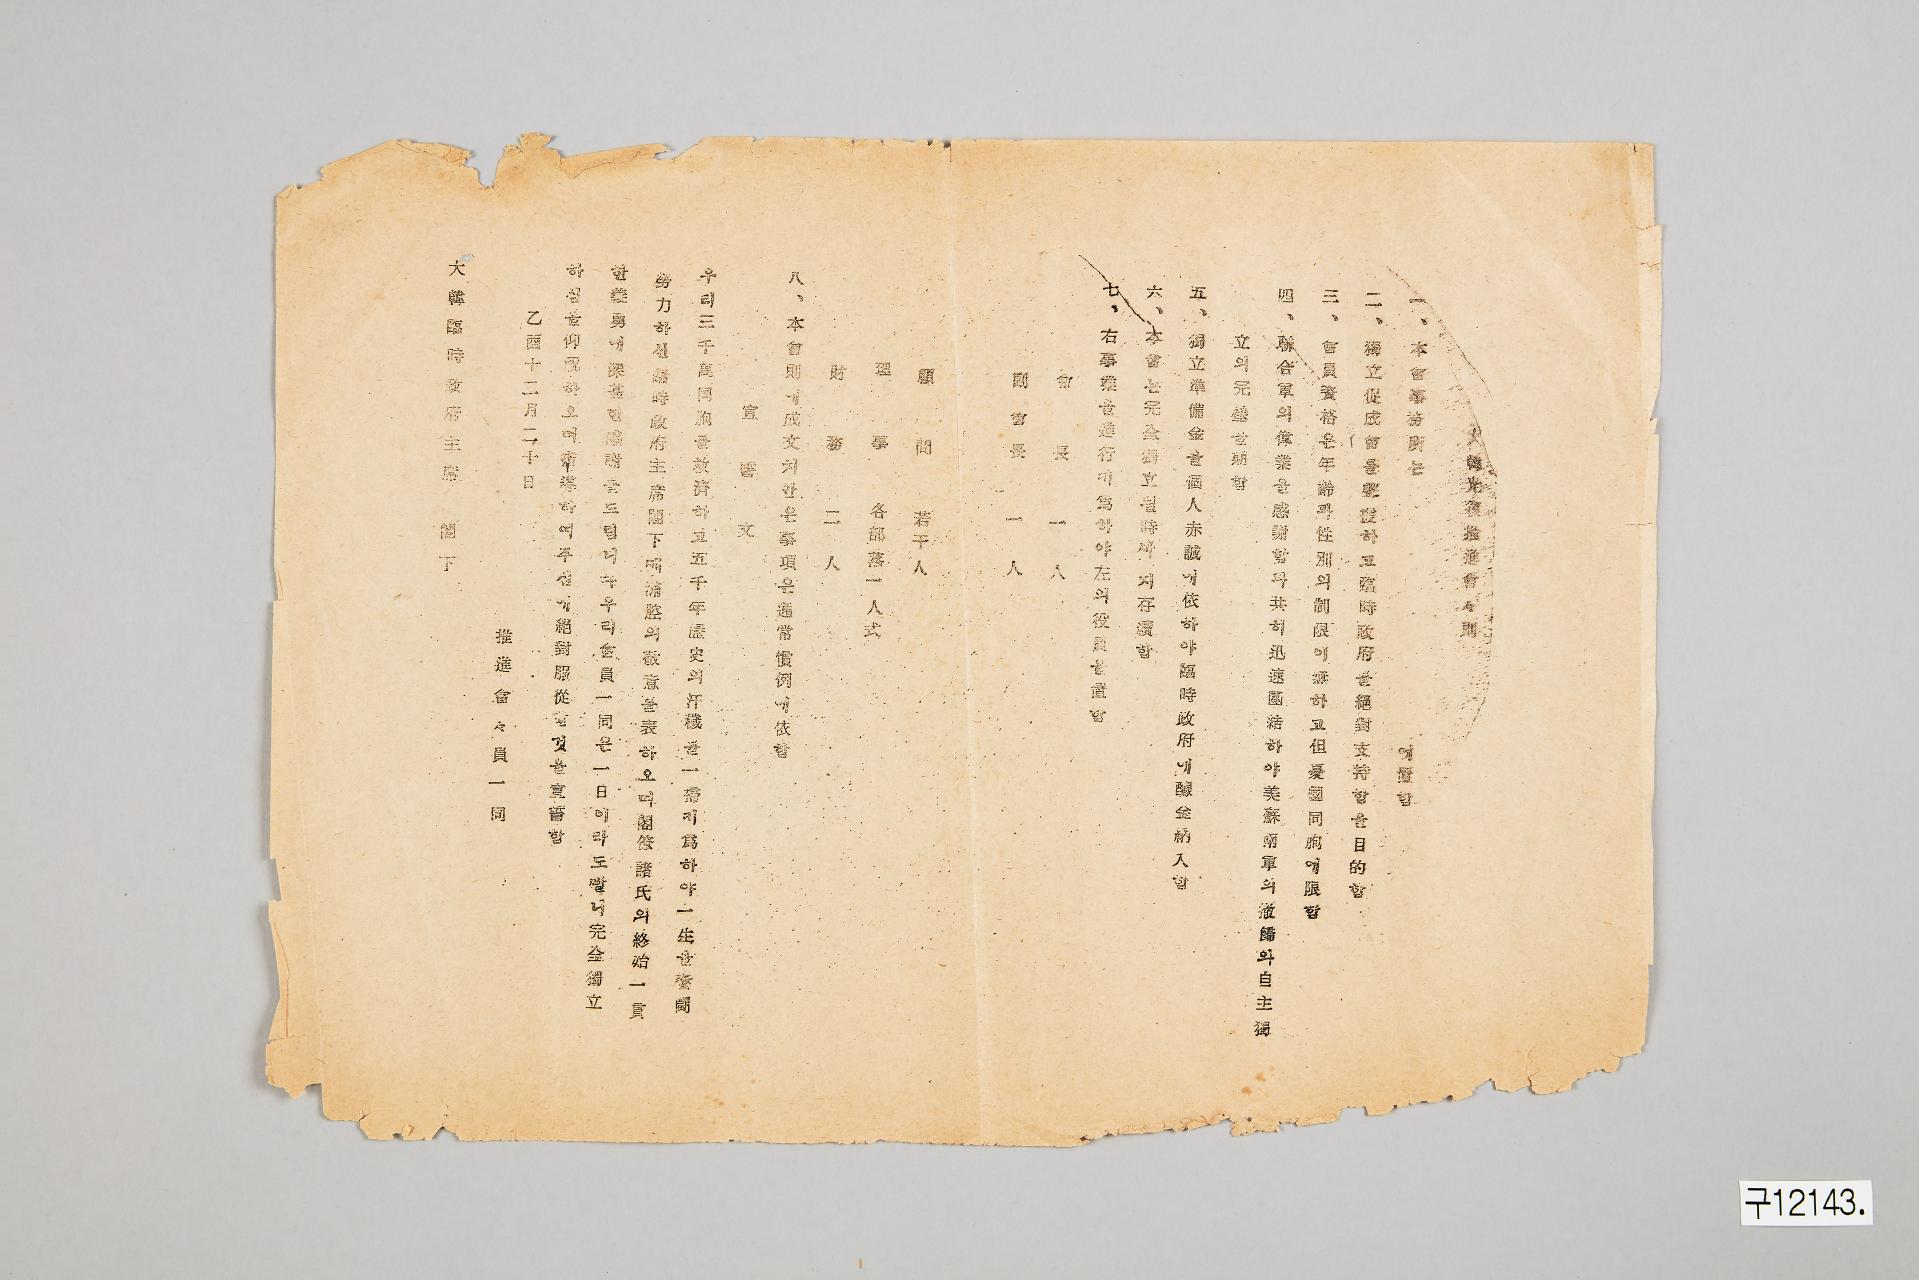 大韓光復推進會々則
一、本會事務所는 에置함
二、獨立促成會를聲援하고臨時政府를絕對支持함을目的함
三、會員資格은年齡과性別의制限이無하고但憂國同胞에限함
四、聯合軍의偉業을感謝함과共히迅速團結하야美蘇兩軍의撤歸와自主獨
立의完遂를期함
五、獨立準備金을個人赤誠에依하야臨時政府에醵金納入함
六、本會는完全獨立될時까지存續함
七、右事業을進行키爲하야左의役員을置함
會長 一人
副會長 一人
顧問 若干人
理事 各部落一人式
財務 二人
八、本會則에成文치안은事項은通常慣例에依함
宣誓文
우리三千萬同胞을救濟하고五千年歷史의汗穢를一掃키爲하야一生을奮鬪
勞力하신臨時政府主席閣下에滿腔의敬意를表하오며閣僚諸氏의終始一貫
한義勇에深甚한感謝를드립니다우리會員一同은一日이라도빨니完全獨立
하심을仰祝하오며 하여주심에絕對服從할것을宣誓함
乙酉十二月二十日
推進會々員一同
大韓臨時政府主席 閣下
구12143.